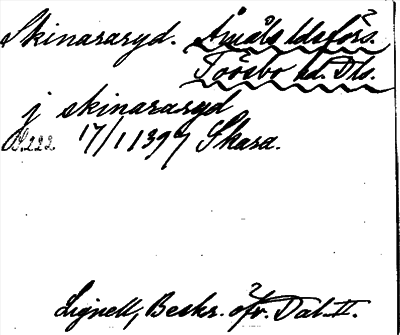 Skinararyd. Åmåls ldsförs.
Tössbo hd. Dls.
j skinararyd
D.222. 17/1 1397 Skara.
Lignell, Beskr. öfv. Dal II.